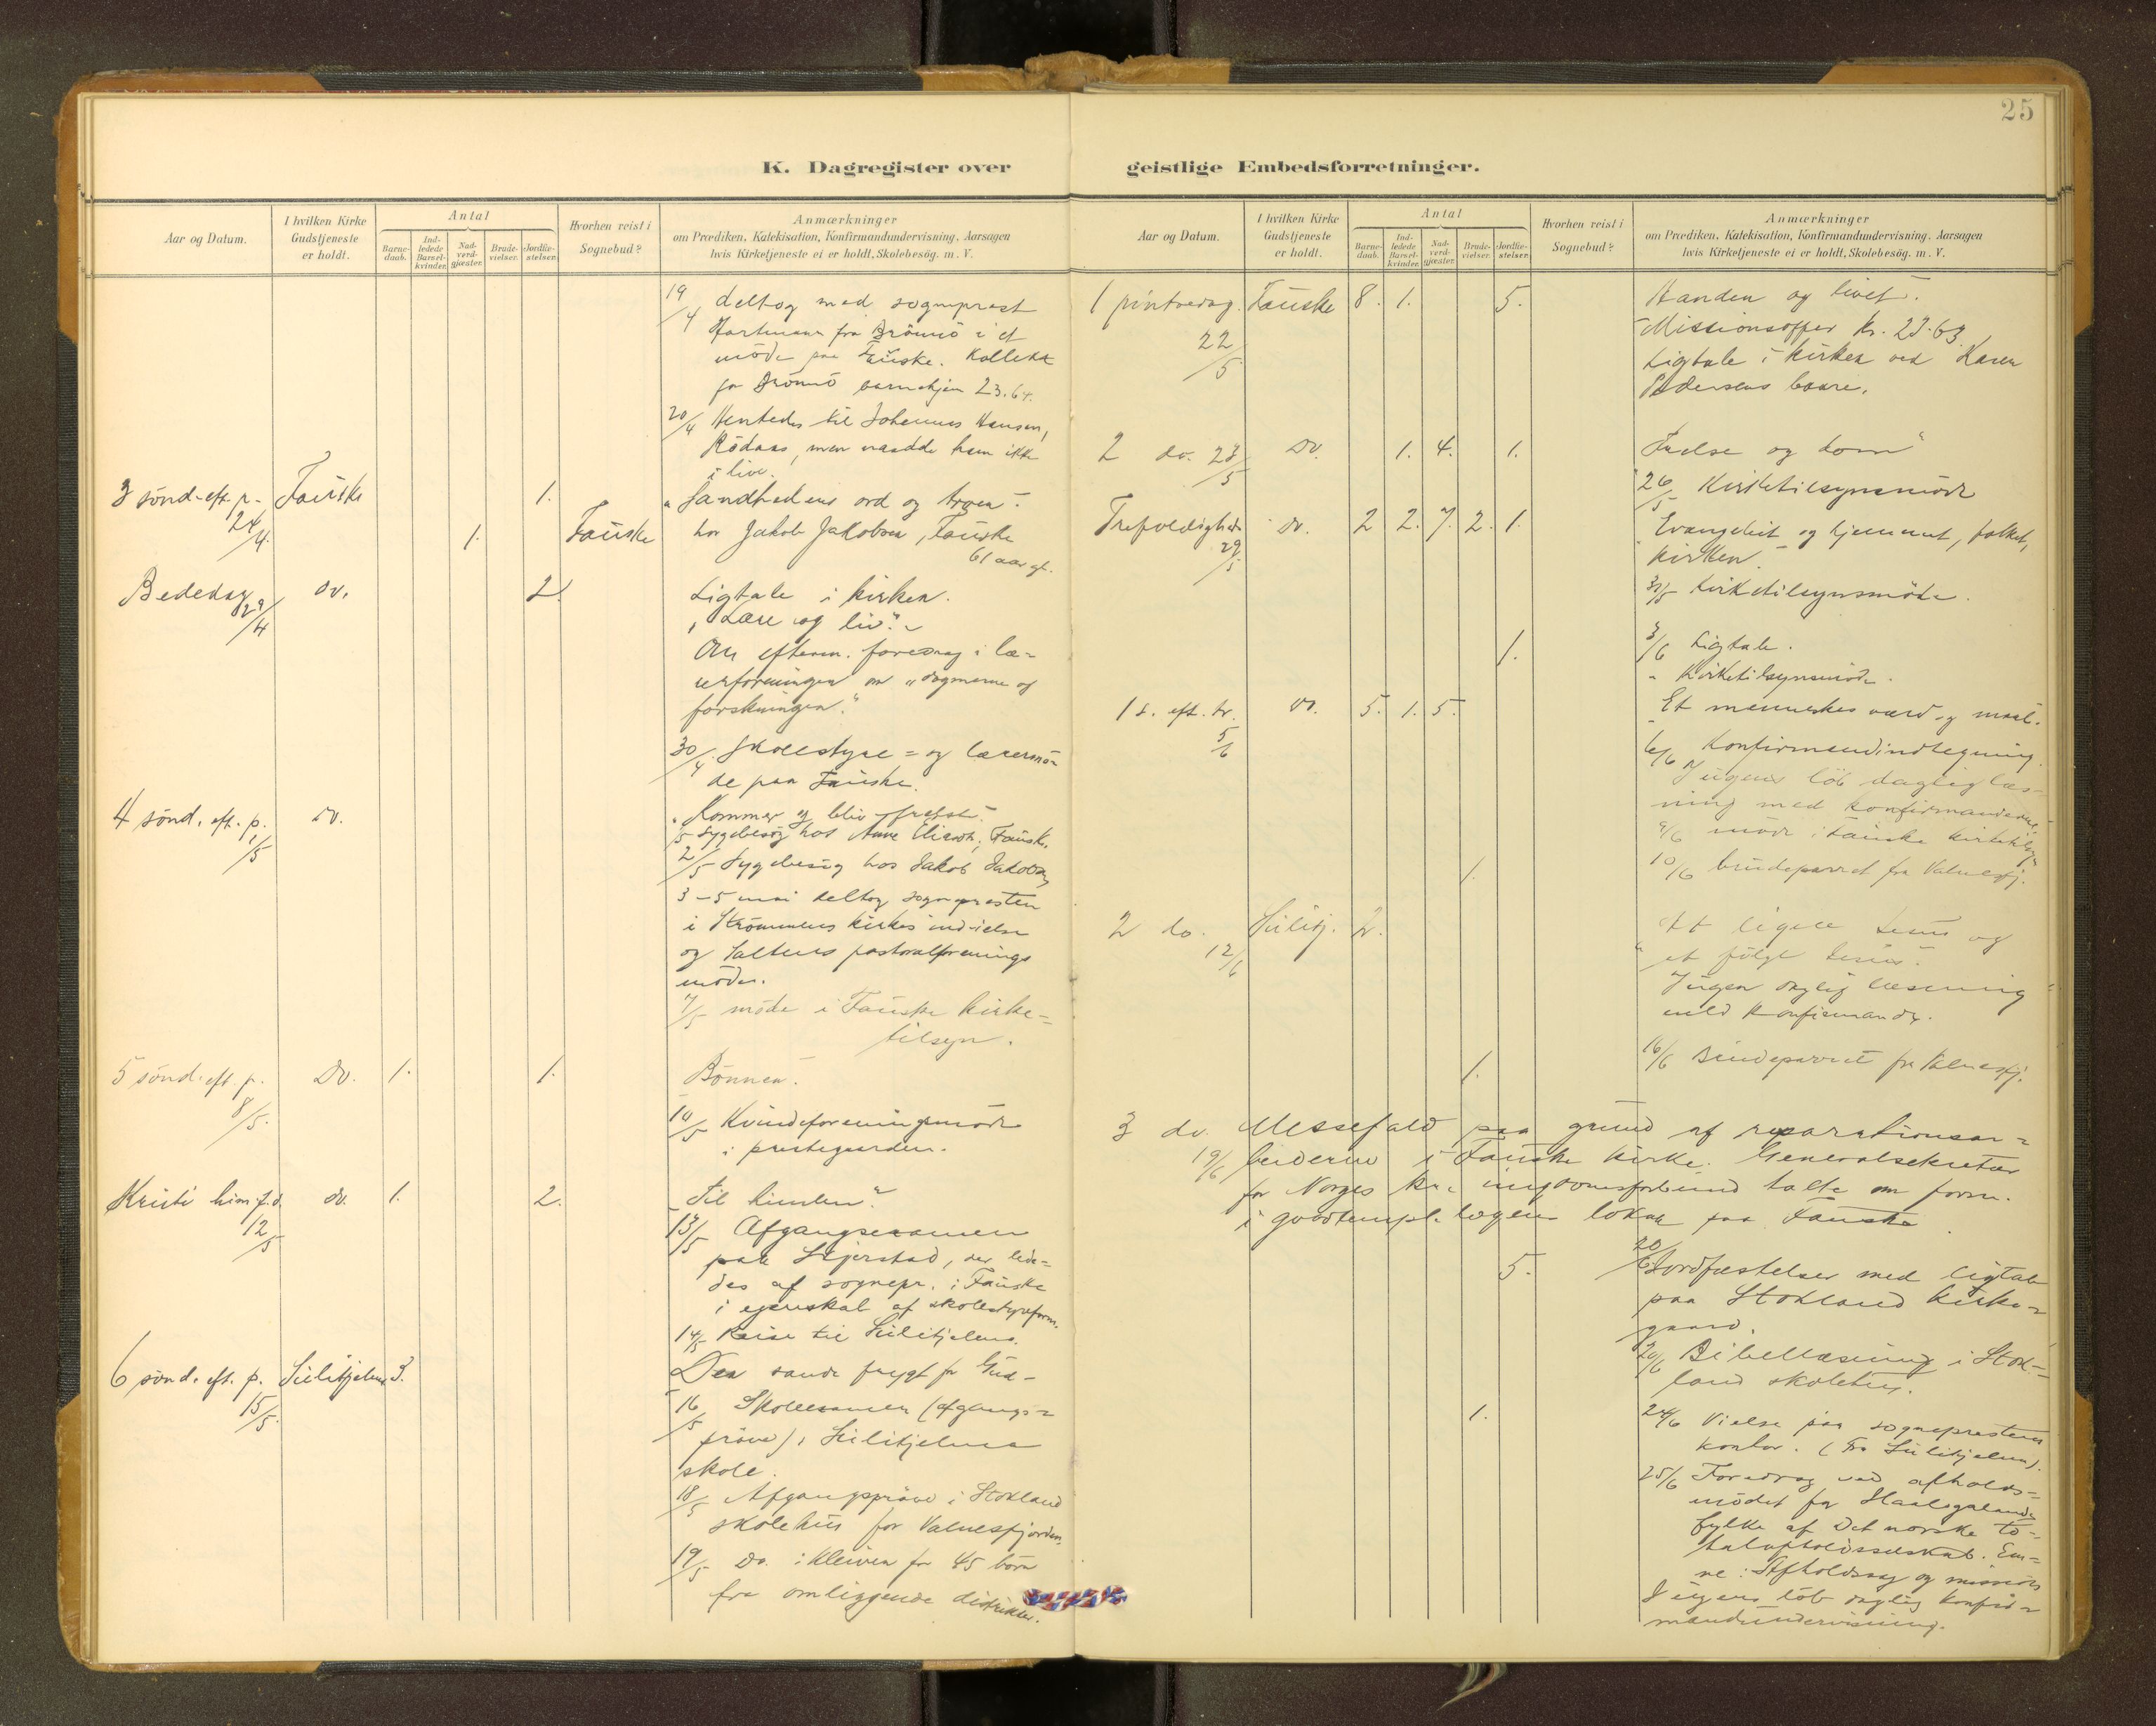 25
K. Dagregister over geistlige Embedsforretninger.
Aar og Datum.
I hvilken Kirke
Gudstjeneste
er holdt.
Antal
Barne-
daab.
Ind-
ledede
Barsel-
kvinder.
Nad-
verd-
gjæster.
Brude-
vielser.
Jordfæ-
stelser.
Hvorhen reist i
Sognebud?
Anmærkninger
om Prædiken, Katekisation, Konfirmandundervisning, Aarsagen
hvis Kirketjeneste ei er holdt, Skolebesög. m. V.
19/4 deltog med sogneprest
Hartmann fra Brönnö i et
möde paa Fauske. Kollekt
for Brönnö barnehjem 23.64.
20/4 Hentedes til Johannes Hansen,
Rödaas, men naadde ham ikke
i live.
3 sönd. eft. p. Fauske 1. „Sandhedens ord og troen“
24/4. 1. Fauske hos Jakob Jakobsen, Fauske
61 aar gl.
Bededag do. 2. Ligtale i kirken.
29/4 „Lære og liv“.
Om efterm. foredrag i læ-
rerforeningen om „dogmerne og
forskningen.“
30/4 Skolestyre- og lærermö-
de paa Fauske.
4 sönd. eft. p. do. „Kommer og bliv frelst“.
1/5 1/5 Sygebesög hos Anne , Fauske.
2/5 Sygebesög hos Jakob Jakobsen
3-5 mai deltog sognepresten
i Strömmens kirkes indvielse
og Saltens pastoralforenings
möde.
7/5 möde i Fauske kirke-
tilsyn.
5 sönd. eft. p. do. 1. 1. Bönnen“.
8/5.
10/5 Kvindeforeningsmöde
i prestegaarden.
Kristi him.f.d. do. 1. 2. „Til himlen“
12/5
13/5 Afgangsexamen
paa Stjerstad, der lede-
des af sognepr. i Fauske
i egenskab af skolestyreform.
14/5 Reise til Sulitjelma.
6 sönd. eft. p. Sulitjelma 3. Den sande frygt for Gud“
15/5.
16/5 Skoleexamen (afgangs-
pröve) i Sulitjelma
skole.
18/5 Afgangspröve i Stokland
skolehus for Valnesfjorden.
19/5 Do. i Kleiven for 45 börn
fra omliggende distrikter.
Aar og Datum.
I hvilken Kirke
Gudstjeneste
er holdt.
Antal
Barne-
daab.
Ind-
ledede
Barsel-
kvinder.
Nad-
verd-
gjæster.
Brude-
vielser.
Jordfæ-
stelser.
Hvorhen reist i
Sognebud?
Anmærkninger
om Prædiken, Katekisation, Konfirmandundervisning, Aarsagen
hvis Kirketjeneste ei er holdt, Skolebesög. m. V.
1 pintsedag. Fauske 8. 1. 5. Aanden og livet“.
22/5 Missionsoffer kr. 23.63.
Ligtale i kirken ved Karen
Pedersens baare.
2 do. 23/5 Do. 1. 4. 1. Frelse og dom“
26/5 Kirketilsynsmöde
Trefoldighed do. 2 2. 7. 2. 1. „Evangeliet og hjemmet, folket,
29/5 kirken“
30/5 Kirketilsynsmöde.
1. 3/6 Ligtale.
„ Kirketilsynsmöde.
1 s. eft. tr. do. 5. 1. 5. Et menneskes værd og maal.
5/6
6/6 Konfirmandindtegning.
I ugens löb daglig læs-
ning med konfirmanderne.
9/6 möde i Fauske kirketilsyn
1. 10/6 brudeparret fra Valnesfj.
2 do. Sulitj. 2. At ligne Jesus og
12/6 „at fölge Jesus“.
I ugen daglig læsning
med konfirmander.
1. 16/6 Brudeparret fra Valnesfj.
3 do. Messefald paa grund af reparationsar-
19/6 beiderne i Fauske kirke. Generalsekretær
for Norges kr. ungdomsforbund talte om form.
i goodtempl. logens lokale paa Fauske.
5. 20/6 Jordfæstelser med ligtale
paa Stokland kirke-
gaard.
20/6 Bibellæsning i Stok-
land skolehus.
1. 24/6 Vielse paa sogneprestens
kontor. (Fra Sulitjelma).
25/6 Foredrag ved afholds-
mödet for Haalogalands
fylke af Det norske to-
talafholdsselskab. Em-
ne: Afholdssag og mission
I ugens löb daglig konfir-
mandundervisning.